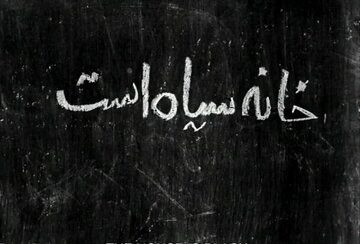 خانه سیاه است